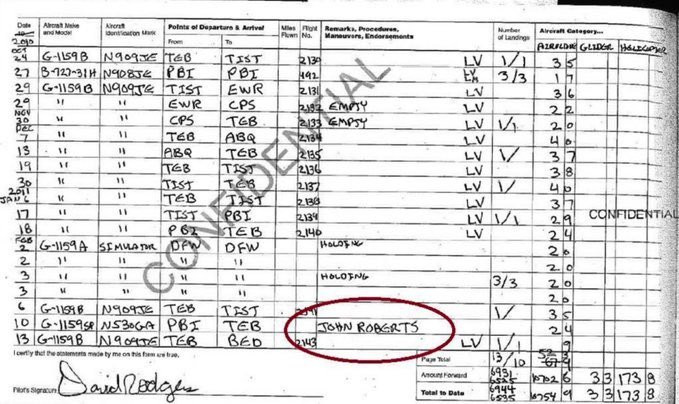 Date Aircraft Make and Model Aircraft Identification Mark Points of Departure & Arrival Miles Flown Flight No. Remarks, Procedures, Maneuvers, Endorsements Number of Landings Aircraft Category...
From To AIRPLANE GLIDER HELICOPTER
2010
OCT 24 G-1159B N909JE TEB TIST 2130 LV 1/1 3 5
27 B-727-31H N908JE PBI PBI 492 LV 3/3 1 7
29 G-1159B N909JE TIST EWR 2131 LV 3 6
29 " " EWR CPS 2132 EMPTY LV 2 2
NOV 30 " " CPS TEB 2133 EMPTY LV 1/1 2 0
DEC 7 " " TEB ABQ 2134 LV 4 0
13 " " ABQ TEB 2135 LV 1/ 3 7
19 " " TEB TIST 2136 LV 3 8
30 " " TIST TEB 2137 LV 1/ 4 0
2011
JAN 6 " " TEB TIST 2138 LV 3 7
17 " " TIST PBI 2139 LV 1/1 2 9
18 " " PBI TEB 2140 LV 2 4
FEB 2 G-1159A SIMULATOR DFW DFW HOLDING 2 0
2 " " " " 2 0
3 " " " " HOLDING 3/3 2 0
3 " " " " 2 0
6 G-1159B N909JE TEB TIST 1/ 3 5
10 G-1159SP N530GA PBI TEB JOHN ROBERTS 2 4
13 G-1159B N909JE TEB BED 2143 LV 1/1 9
CONFIDENTIAL
CONFIDENTIAL
I certify that the statements made by me on this form are true.
Page Total 13/10
Amount Forward 6931 6525 10702 6 3 3 173 8
Total to Date 6944 6535 10754 9 3 3 173 8
Pilot's Signature David Rodgers